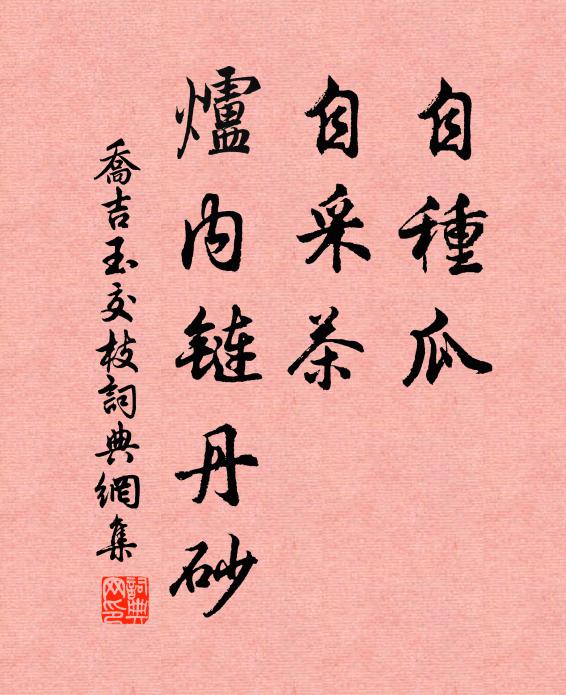 自種瓜
自采茶
爐内鏈丹砂
喬吉玉交枝詞典網集
詞典網印